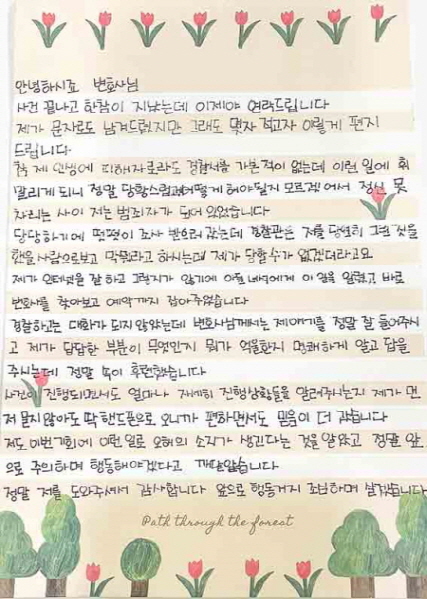 안녕하시죠 변호사님
사건 끝나고 한참이 지났는데 이제야 연락드립니다
제가 문자로도 남겨드렸지만 그래도 몇자 적고자 이렇게 편지
드립니다
참 제 인생에 피해자로라도 경찰서를 가본적이 없는데 이런 일에 휘
말리게 되니 정말 당황스럽고 어떻게 해야 될지 모르겠어서 정신 못
차리는 사이 저는 범죄자가 되어 있었습니다
당당하기에 떳떳이 조사 받으러 갔는데 경찰관은 저를 당연히 그런 짓을
했을 사람으로 보고 막 뭐라고 하시는데 제가 당할수가 없겠더라고요
제가 인터넷을 잘 하고 그렇지가 않기에 아들 녀석에게 이 일을 알렸고 바로
변호사를 찾아보고 예약까지 잡아주었습니다
경찰하고는 대화가 되지 않았는데 변호사님께서는 제 얘기를 정말 잘 들어주시
고 제가 답답한 부분이 무엇인지 뭐가 억울한지 명쾌하게 알고 답을
주시는데 정말 속이 후련했습니다
사건이 진행되면서도 얼마나 자세히 진행상황들을 알려주시는지 제가 먼
저 묻지 않아도 딱 핸드폰으로 오니까 편하면서도 믿음이 더 갔습니다
저도 이번 기회에 이런 일로 오해의 소지가 생긴다는 것을 알았고 정말 앞
으로 주의하며 행동해야겠다고 깨달았습니다
정말 저를 도와주셔서 감사합니다 앞으로 행동거지 조심하며 살겠습니다
Path through the forest